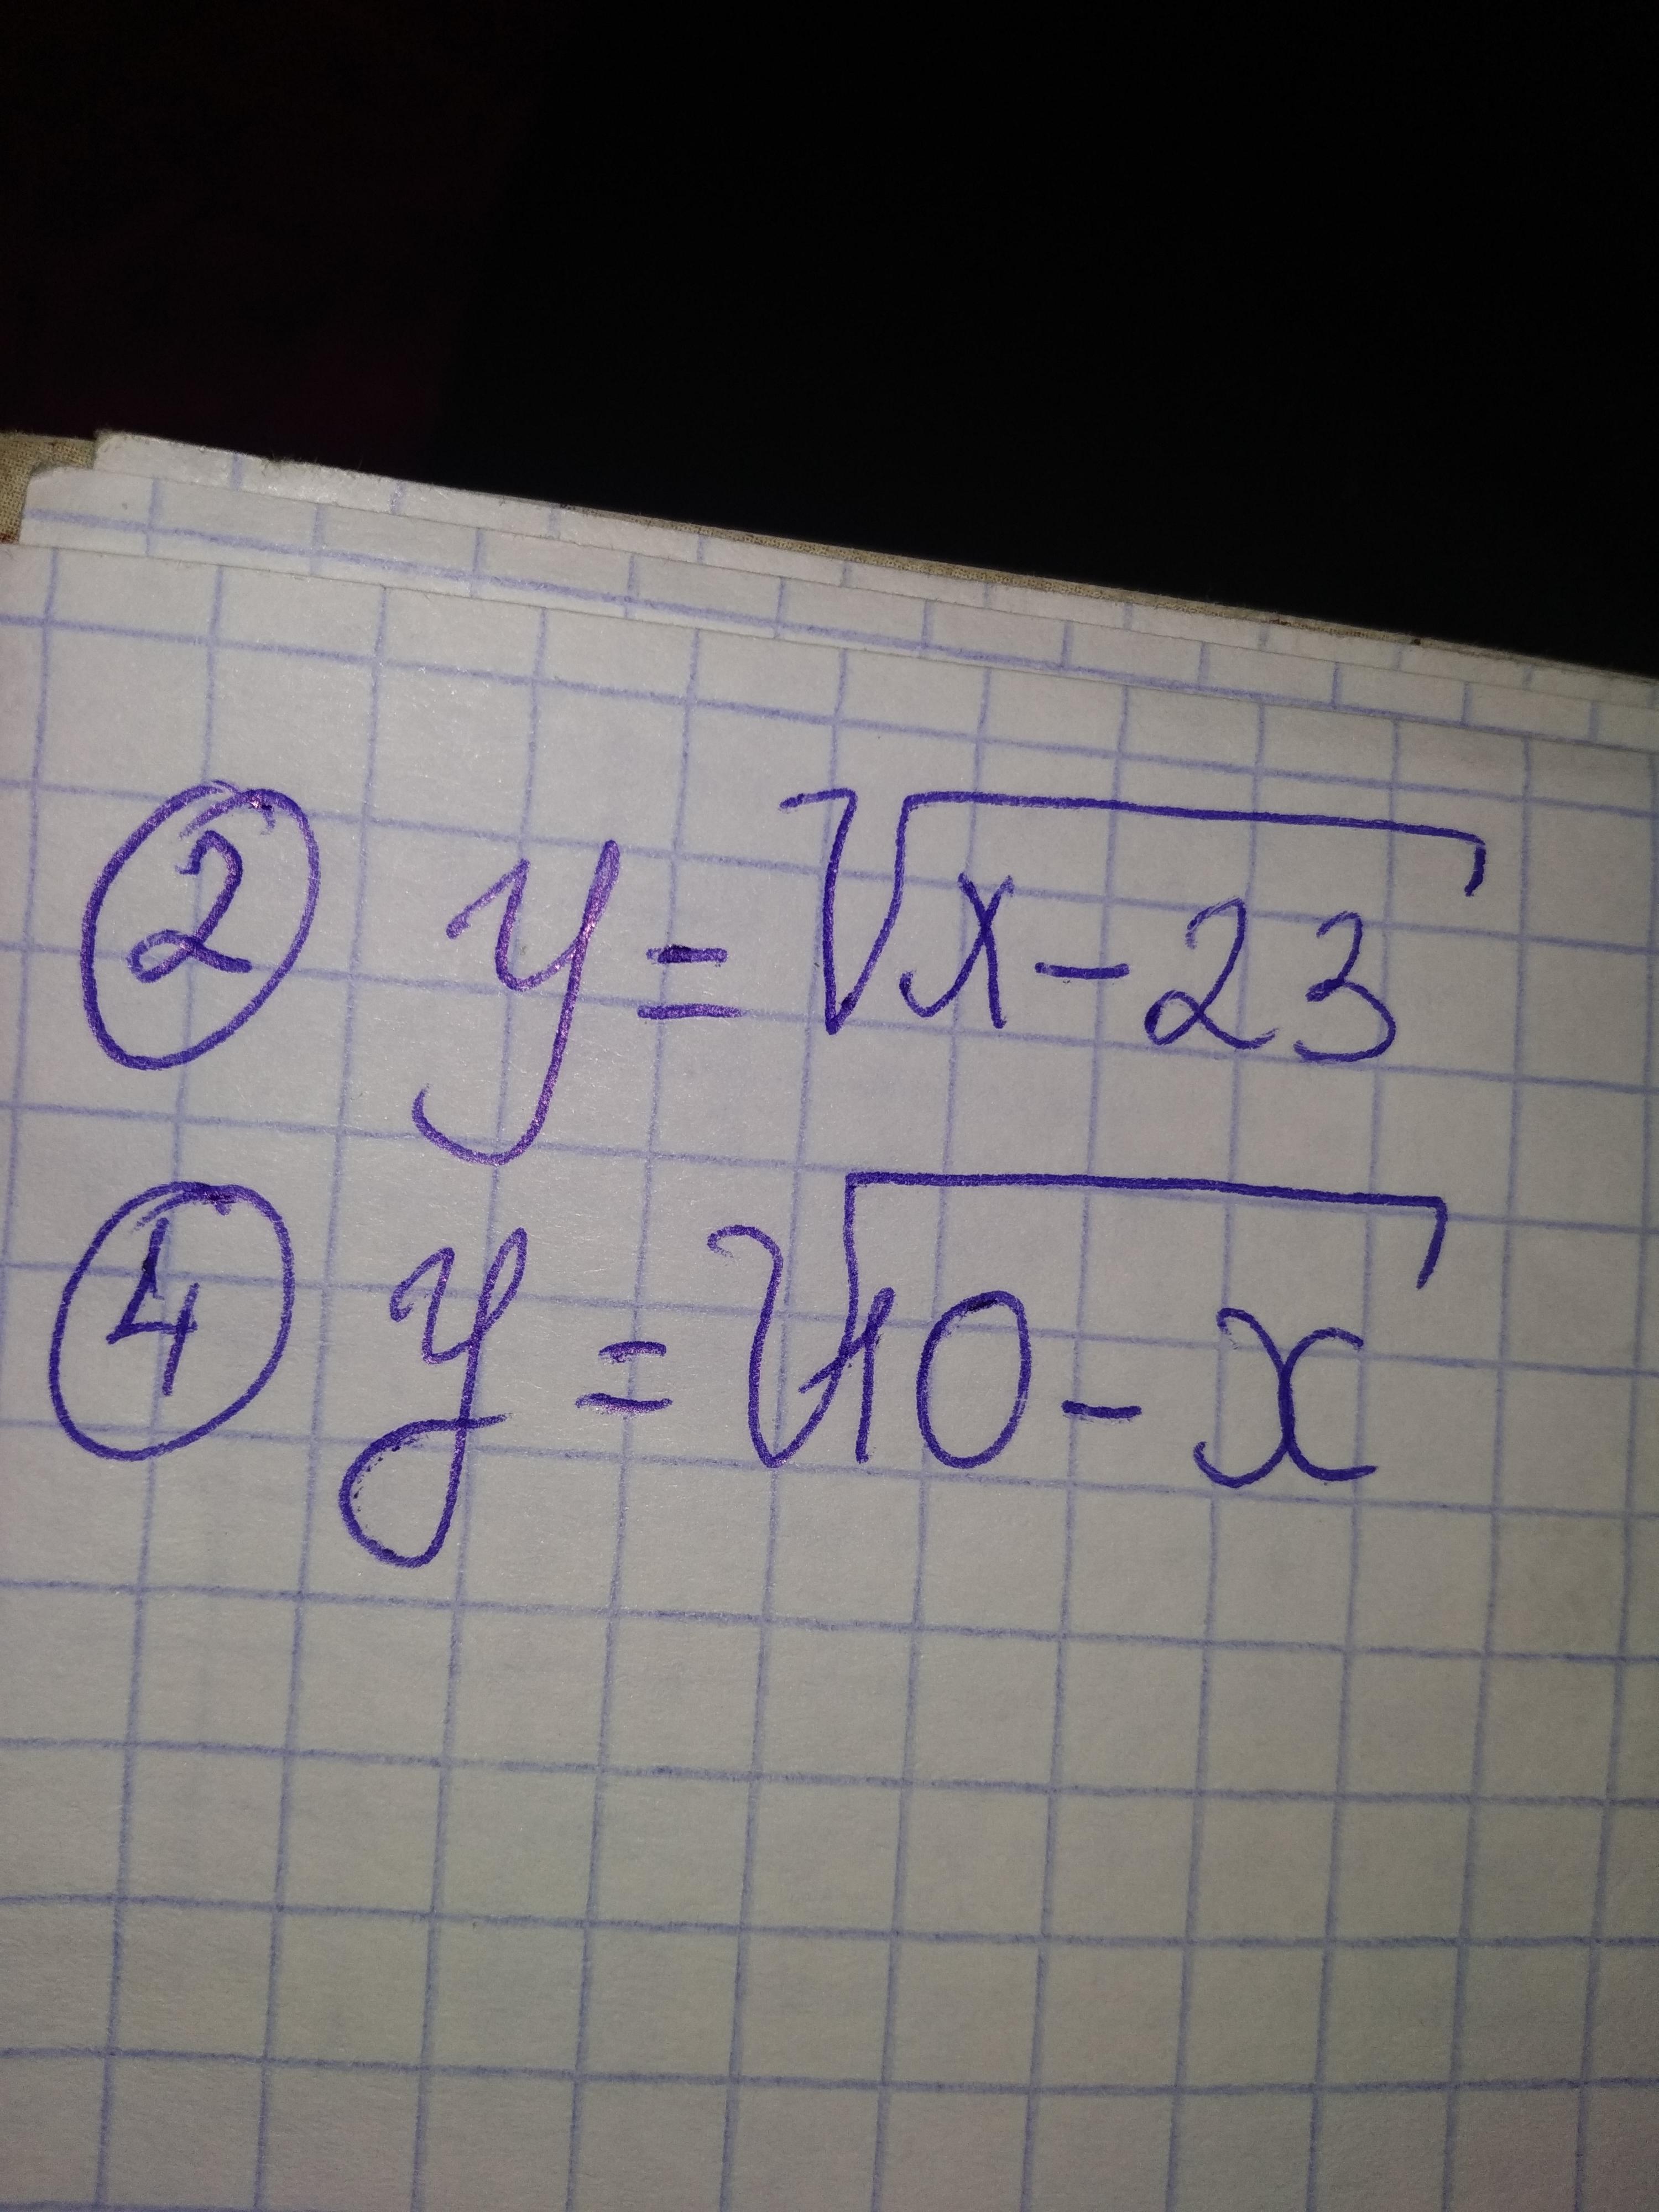 ② y = √x - 23
④ y = √10 - x